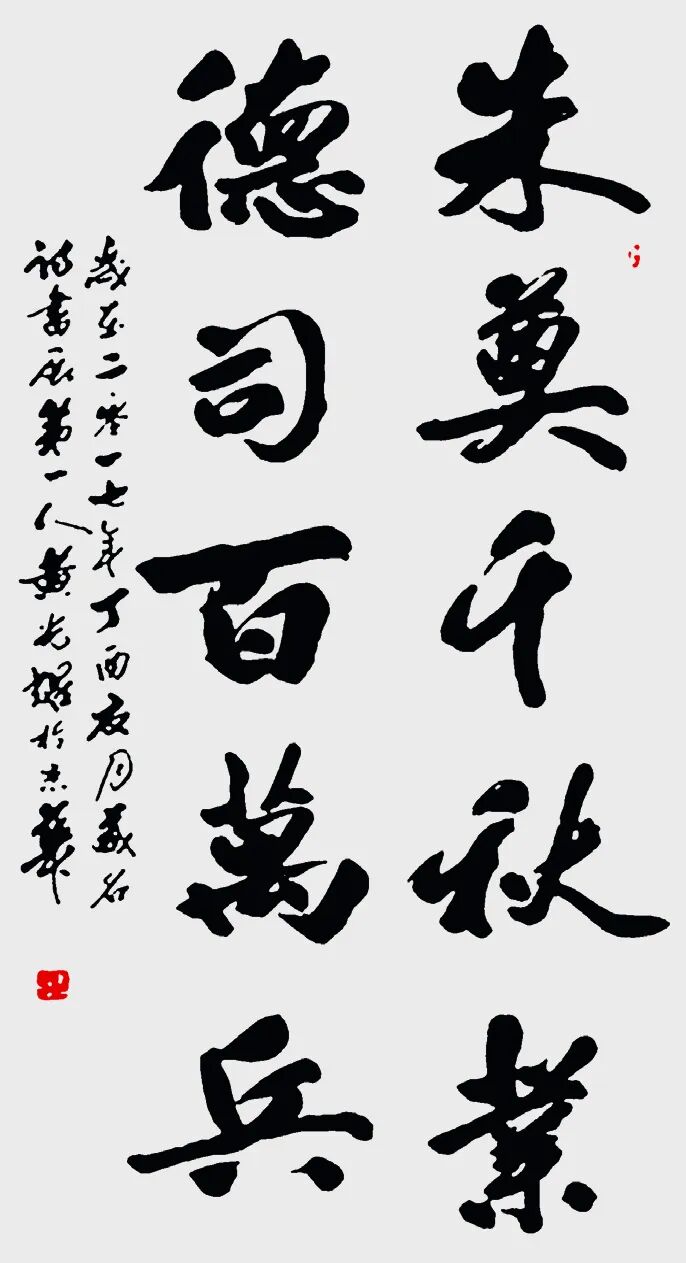 朱奠千秋業
德司百萬兵
歲在二零一七年丁酉夜月藏名
詩書展第一人黄光耀於京華